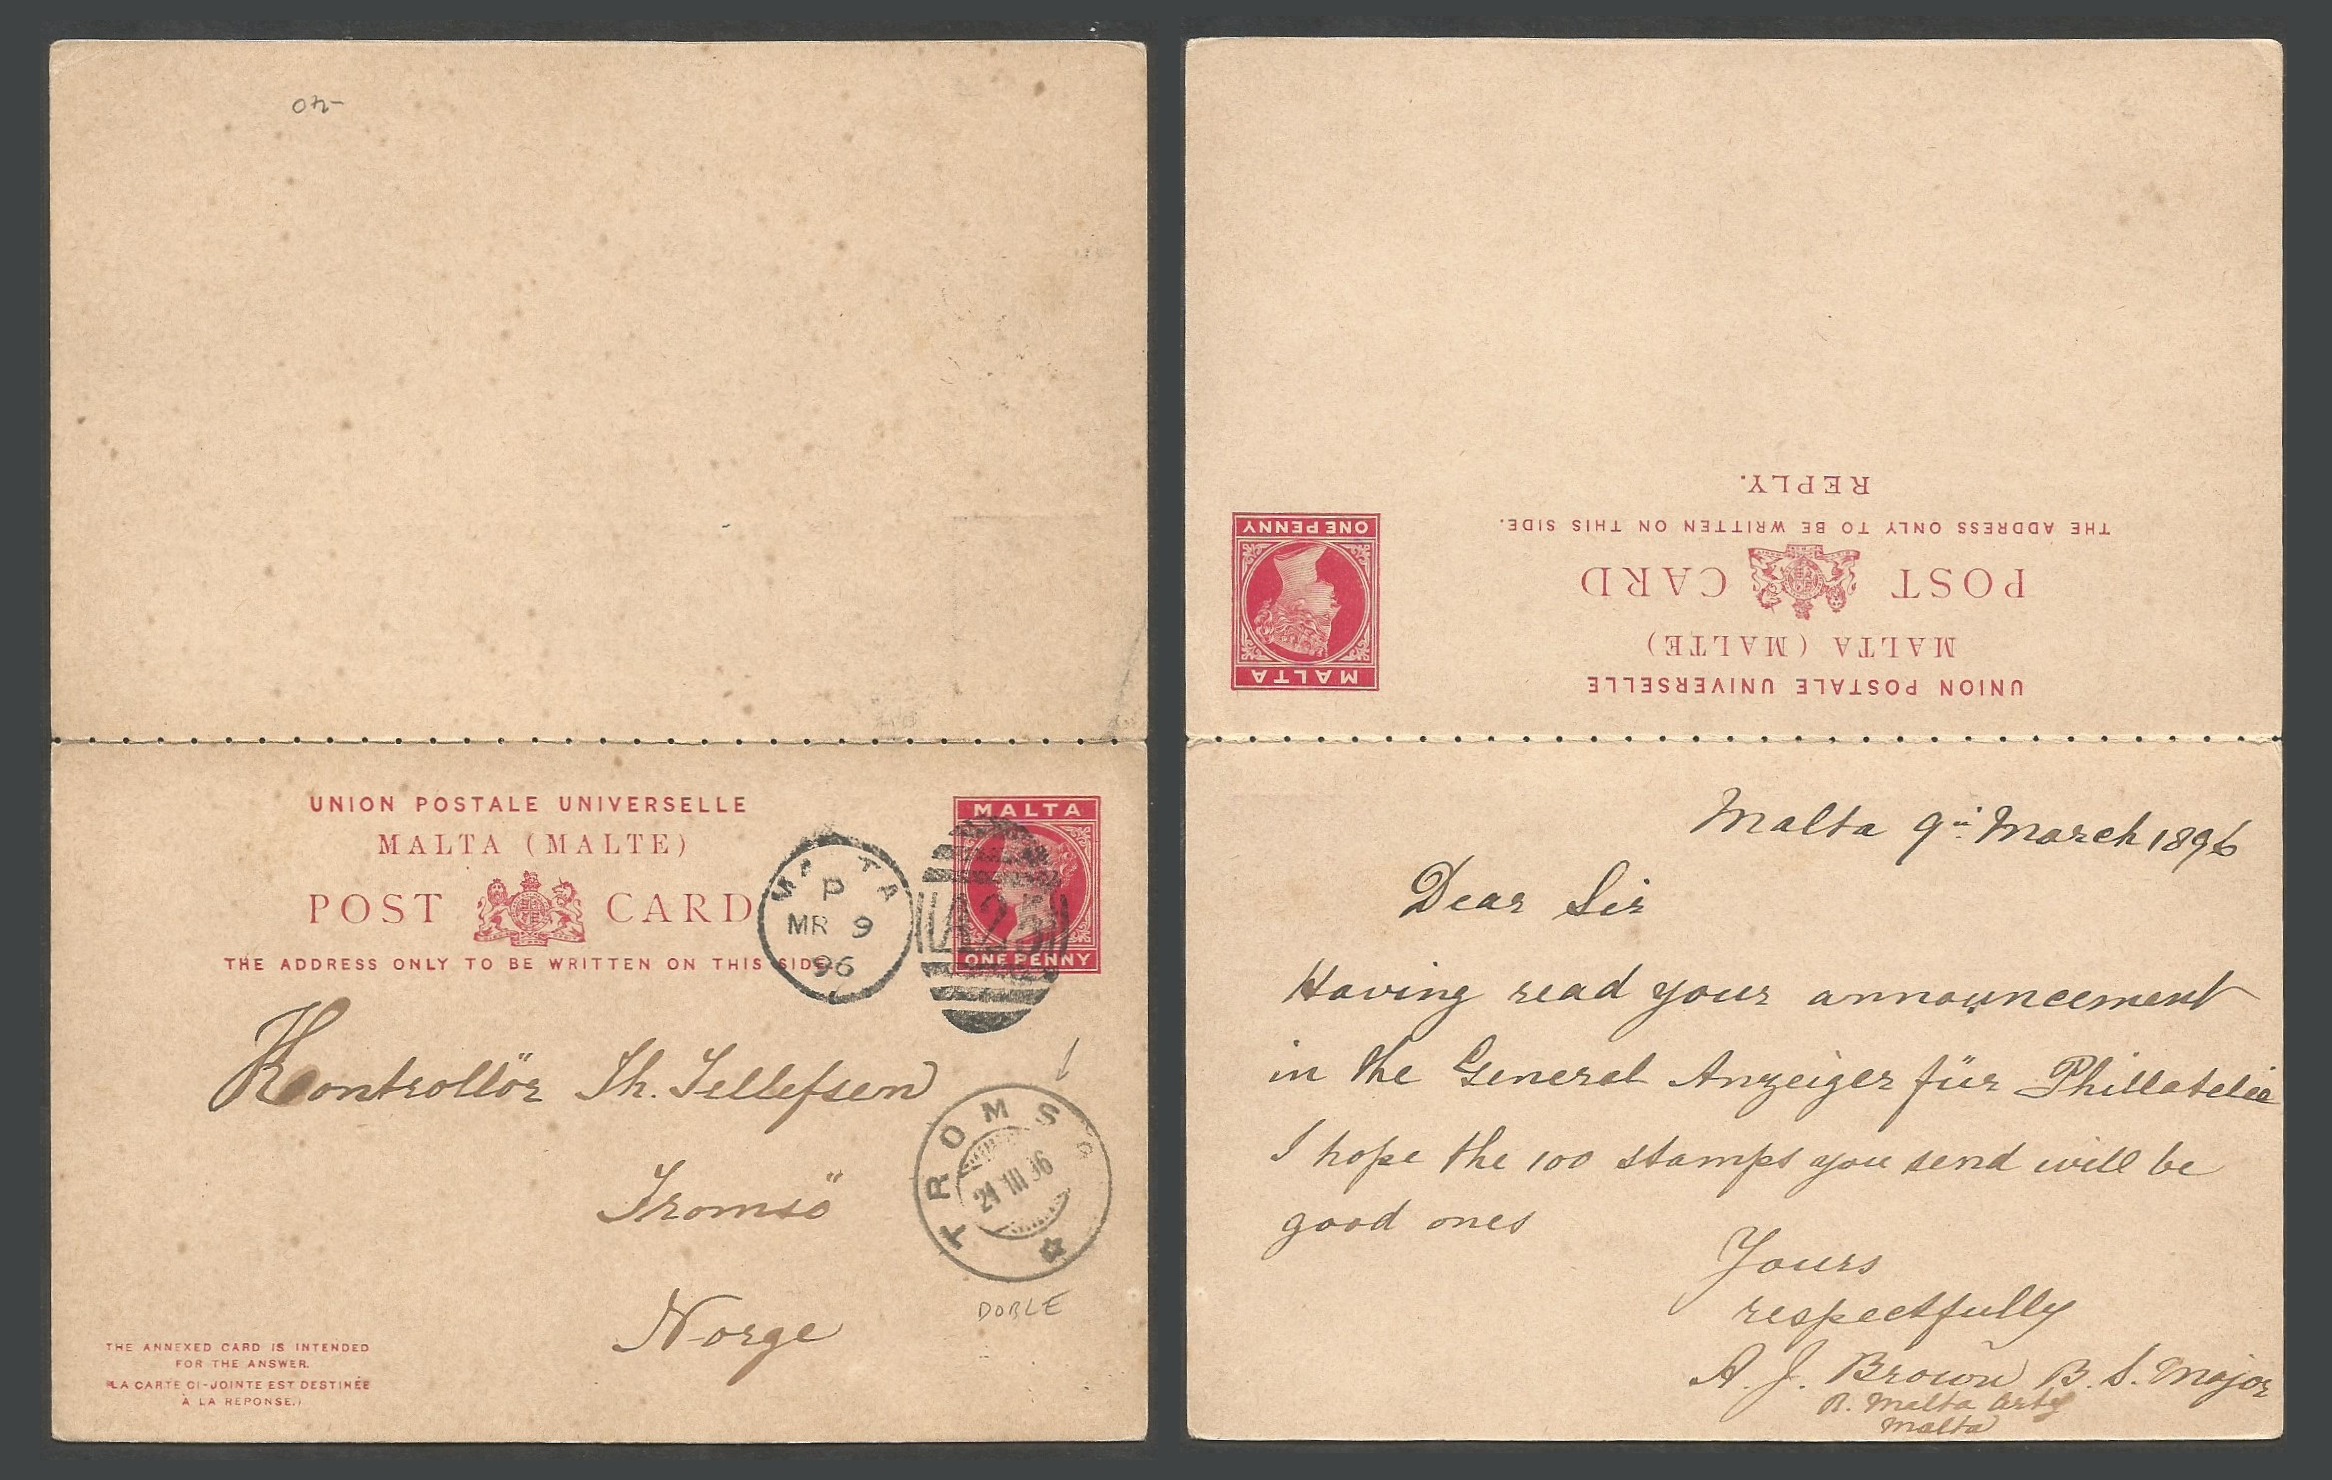 UNION POSTALE UNIVERSELLE
MALTA (MALTE)
POST CARD
THE ADDRESS ONLY TO BE WRITTEN ON THIS SIDE.
MALTA
ONE PENNY
MALTA
P
MR 9
96
A25
Kontrollör Th. Tellefsen
Tromsö
Norge
TROMSO
21 III 96
DOBLE
THE ANNEXED CARD IS INTENDED
FOR THE ANSWER.
(LA CARTE CI-JOINTE EST DESTINÉE
À LA RÉPONSE.)
UNION POSTALE UNIVERSELLE
MALTA (MALTE)
POST CARD
THE ADDRESS ONLY TO BE WRITTEN ON THIS SIDE.
REPLY.
MALTA
ONE PENNY
Malta 9th March 1896
Dear Sir
Having read your announcement
in the General Anzeiger für Phillatelie
I hope the 100 stamps you send will be
good ones
Yours
respectfully
A. J. Brown B. S. Major
R. Malta Arty
Malta